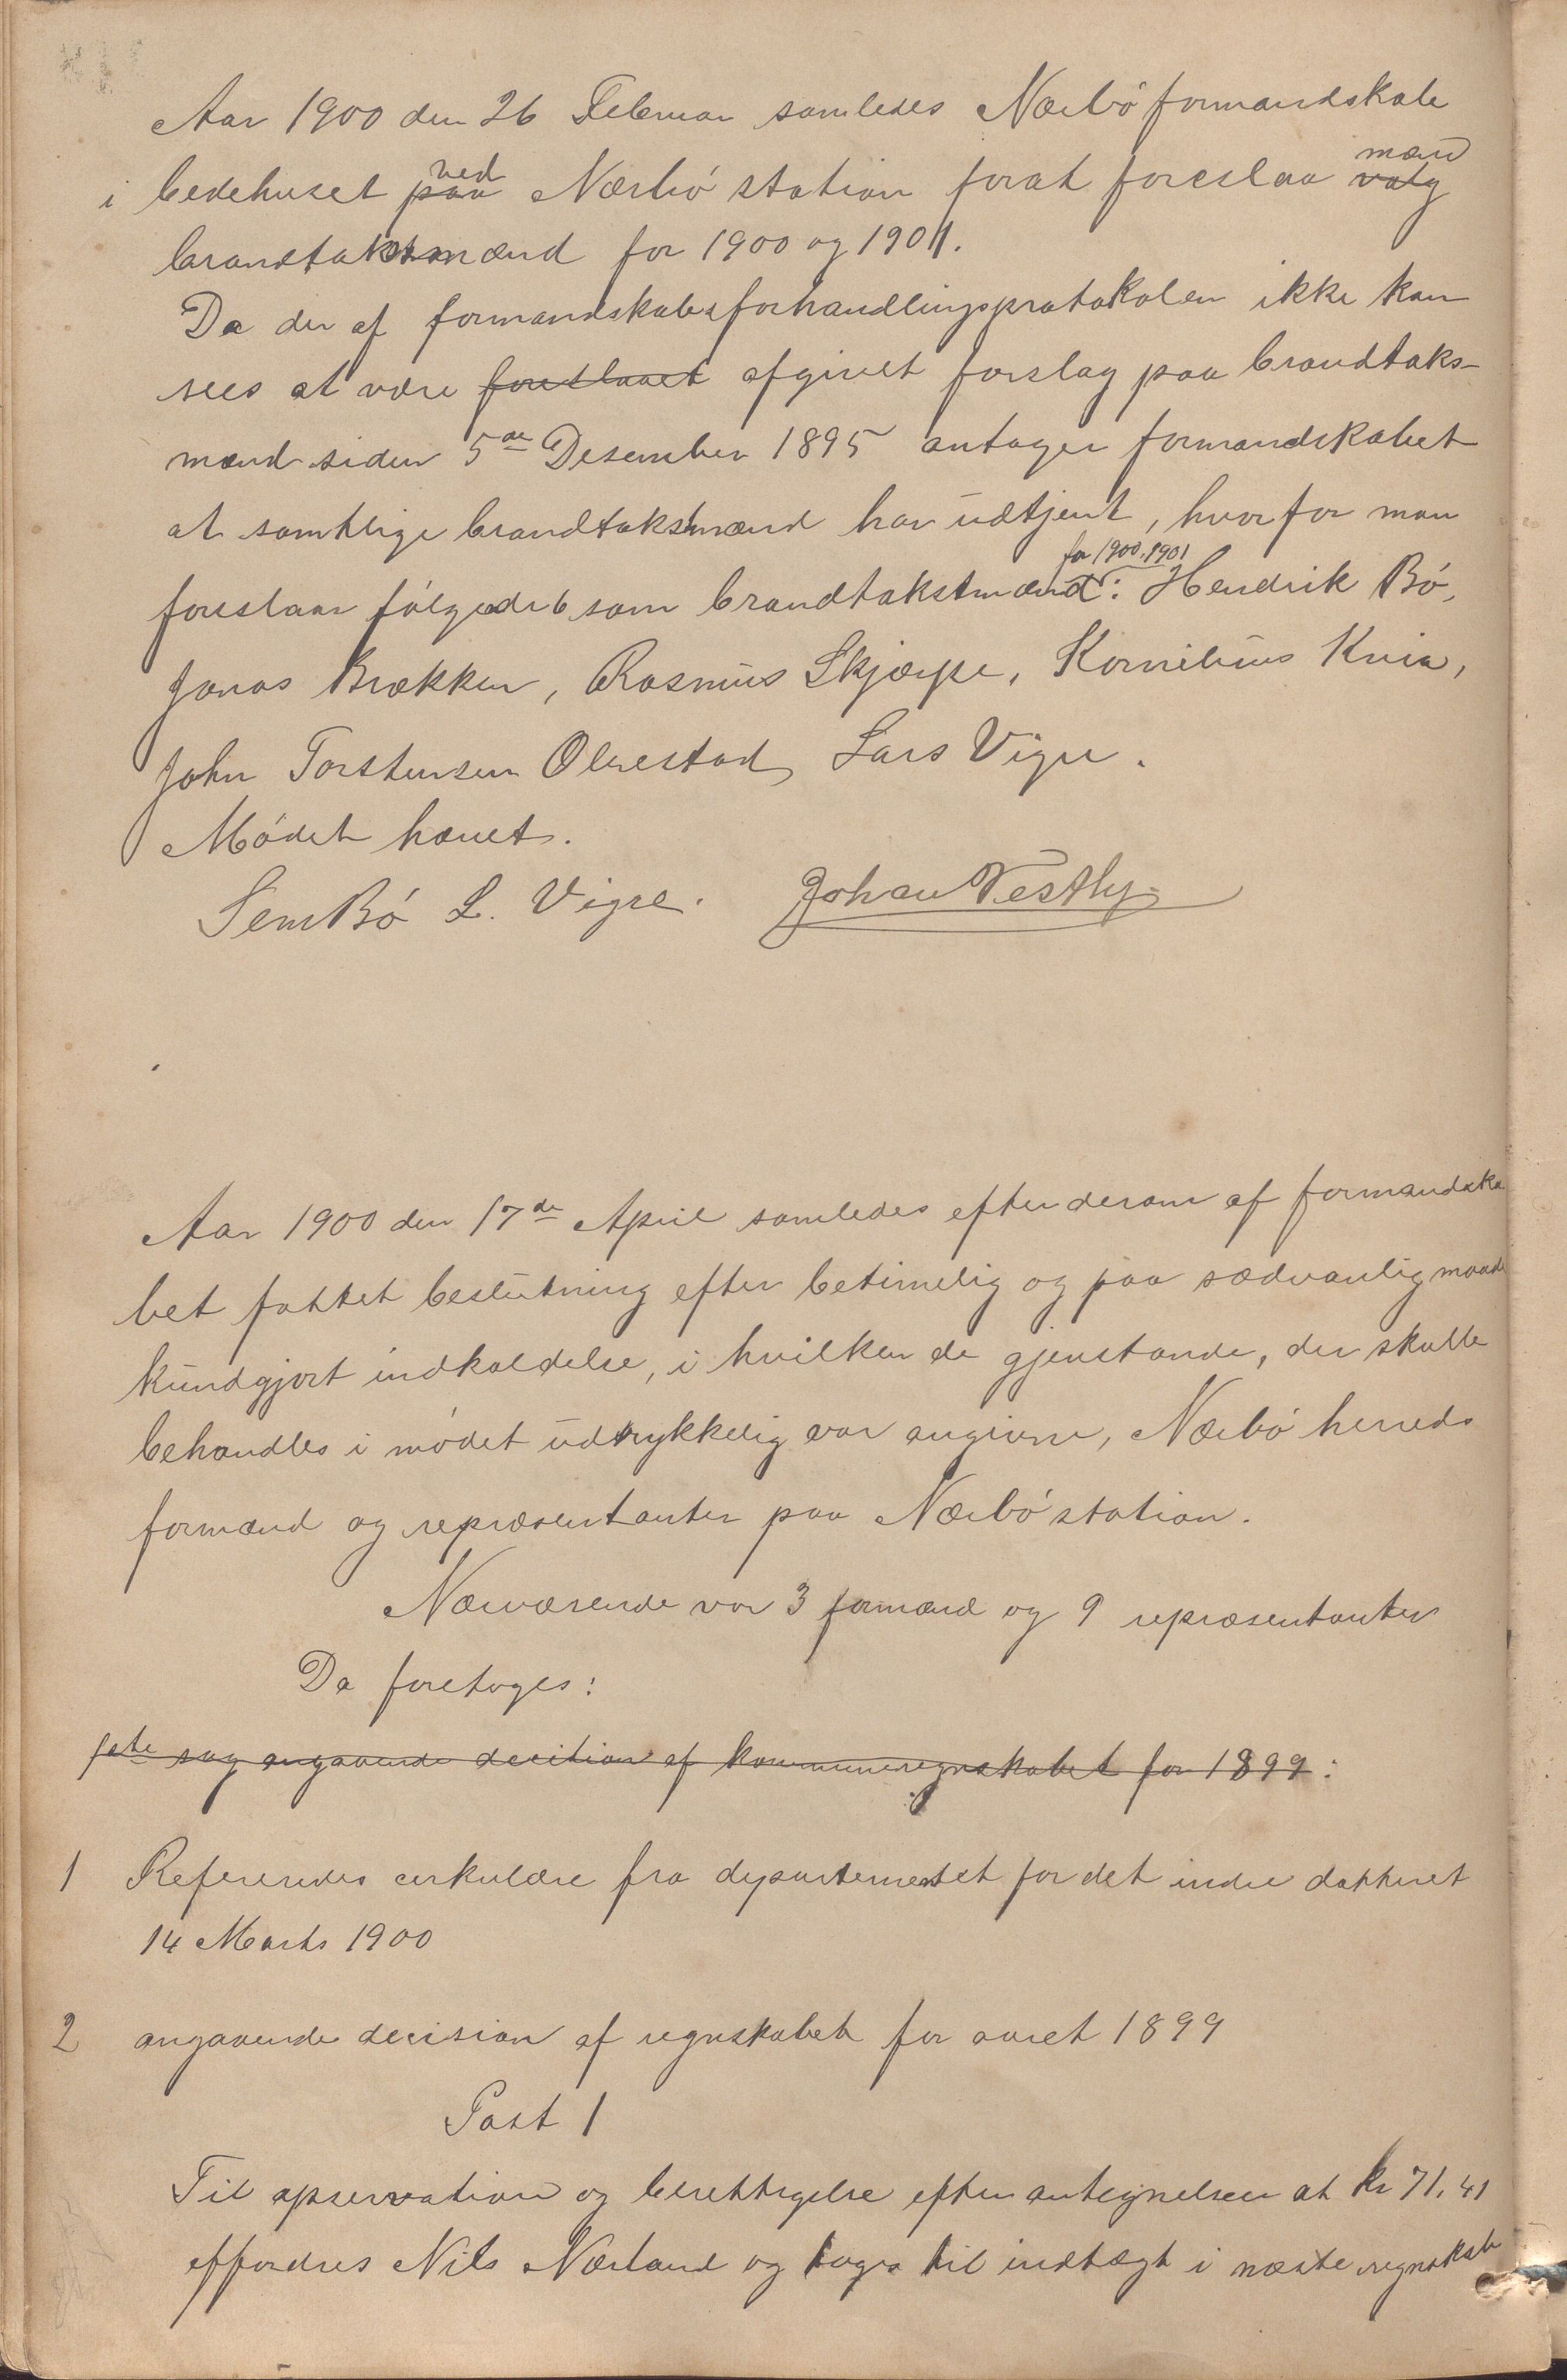 Aar 1900 den 26 Februar samledes Nærbø formandskab
i bedehuset paa ved Nærbø station forat foreslaa valg mænd
brandtakstmænd for 1900 og 1901.
Da der af formandskabsforhandlingsprotokolen ikke kan
sees at være foreslaaet afgivet forslag paa brandtaks-
mænd siden 5de Desember 1895 antager formandskabet
at samtlige brandtakstmænd har udtjent, hvorfor man
foreslaar følgende 6 som brandtakstmænd for 1900.1901: Hendrik Bø,
Jonas Brækken, Rasmus Skjærpe, Kornelius Kvia,
John Torstensen Obrestad, Lars Vigre.
Mødet hævet.
Sem Bø L. Vigre. Johan Vestly
Aar 1900 den 17de April samledes efter derom af formandska
bet fattet beslutning efter betimelig og paa sædvanlig maade
kundgjort indkaldelse, i hvilken de gjenstande, der skulle
behandles i mødet udtrykkelig var angivne, Nærbø herreds
formænd og repræsentanter paa Nærbø station.
Nærværende var 3 formænd og 9 repræsentanter
Da foretoges:
1ste sag angaaende decition af kommuneregnskabet for 1899:
1 Refereredes cirkulære fra departementet for det indre datteret
14 Marts 1900
2 angaaende decision af regnskabet for aaret 1899
Post 1
Til opservation og berettigelse efter antegnelsen at kr 71,41
affordres Nils Nærland og tages til indtægt i næste regnskab